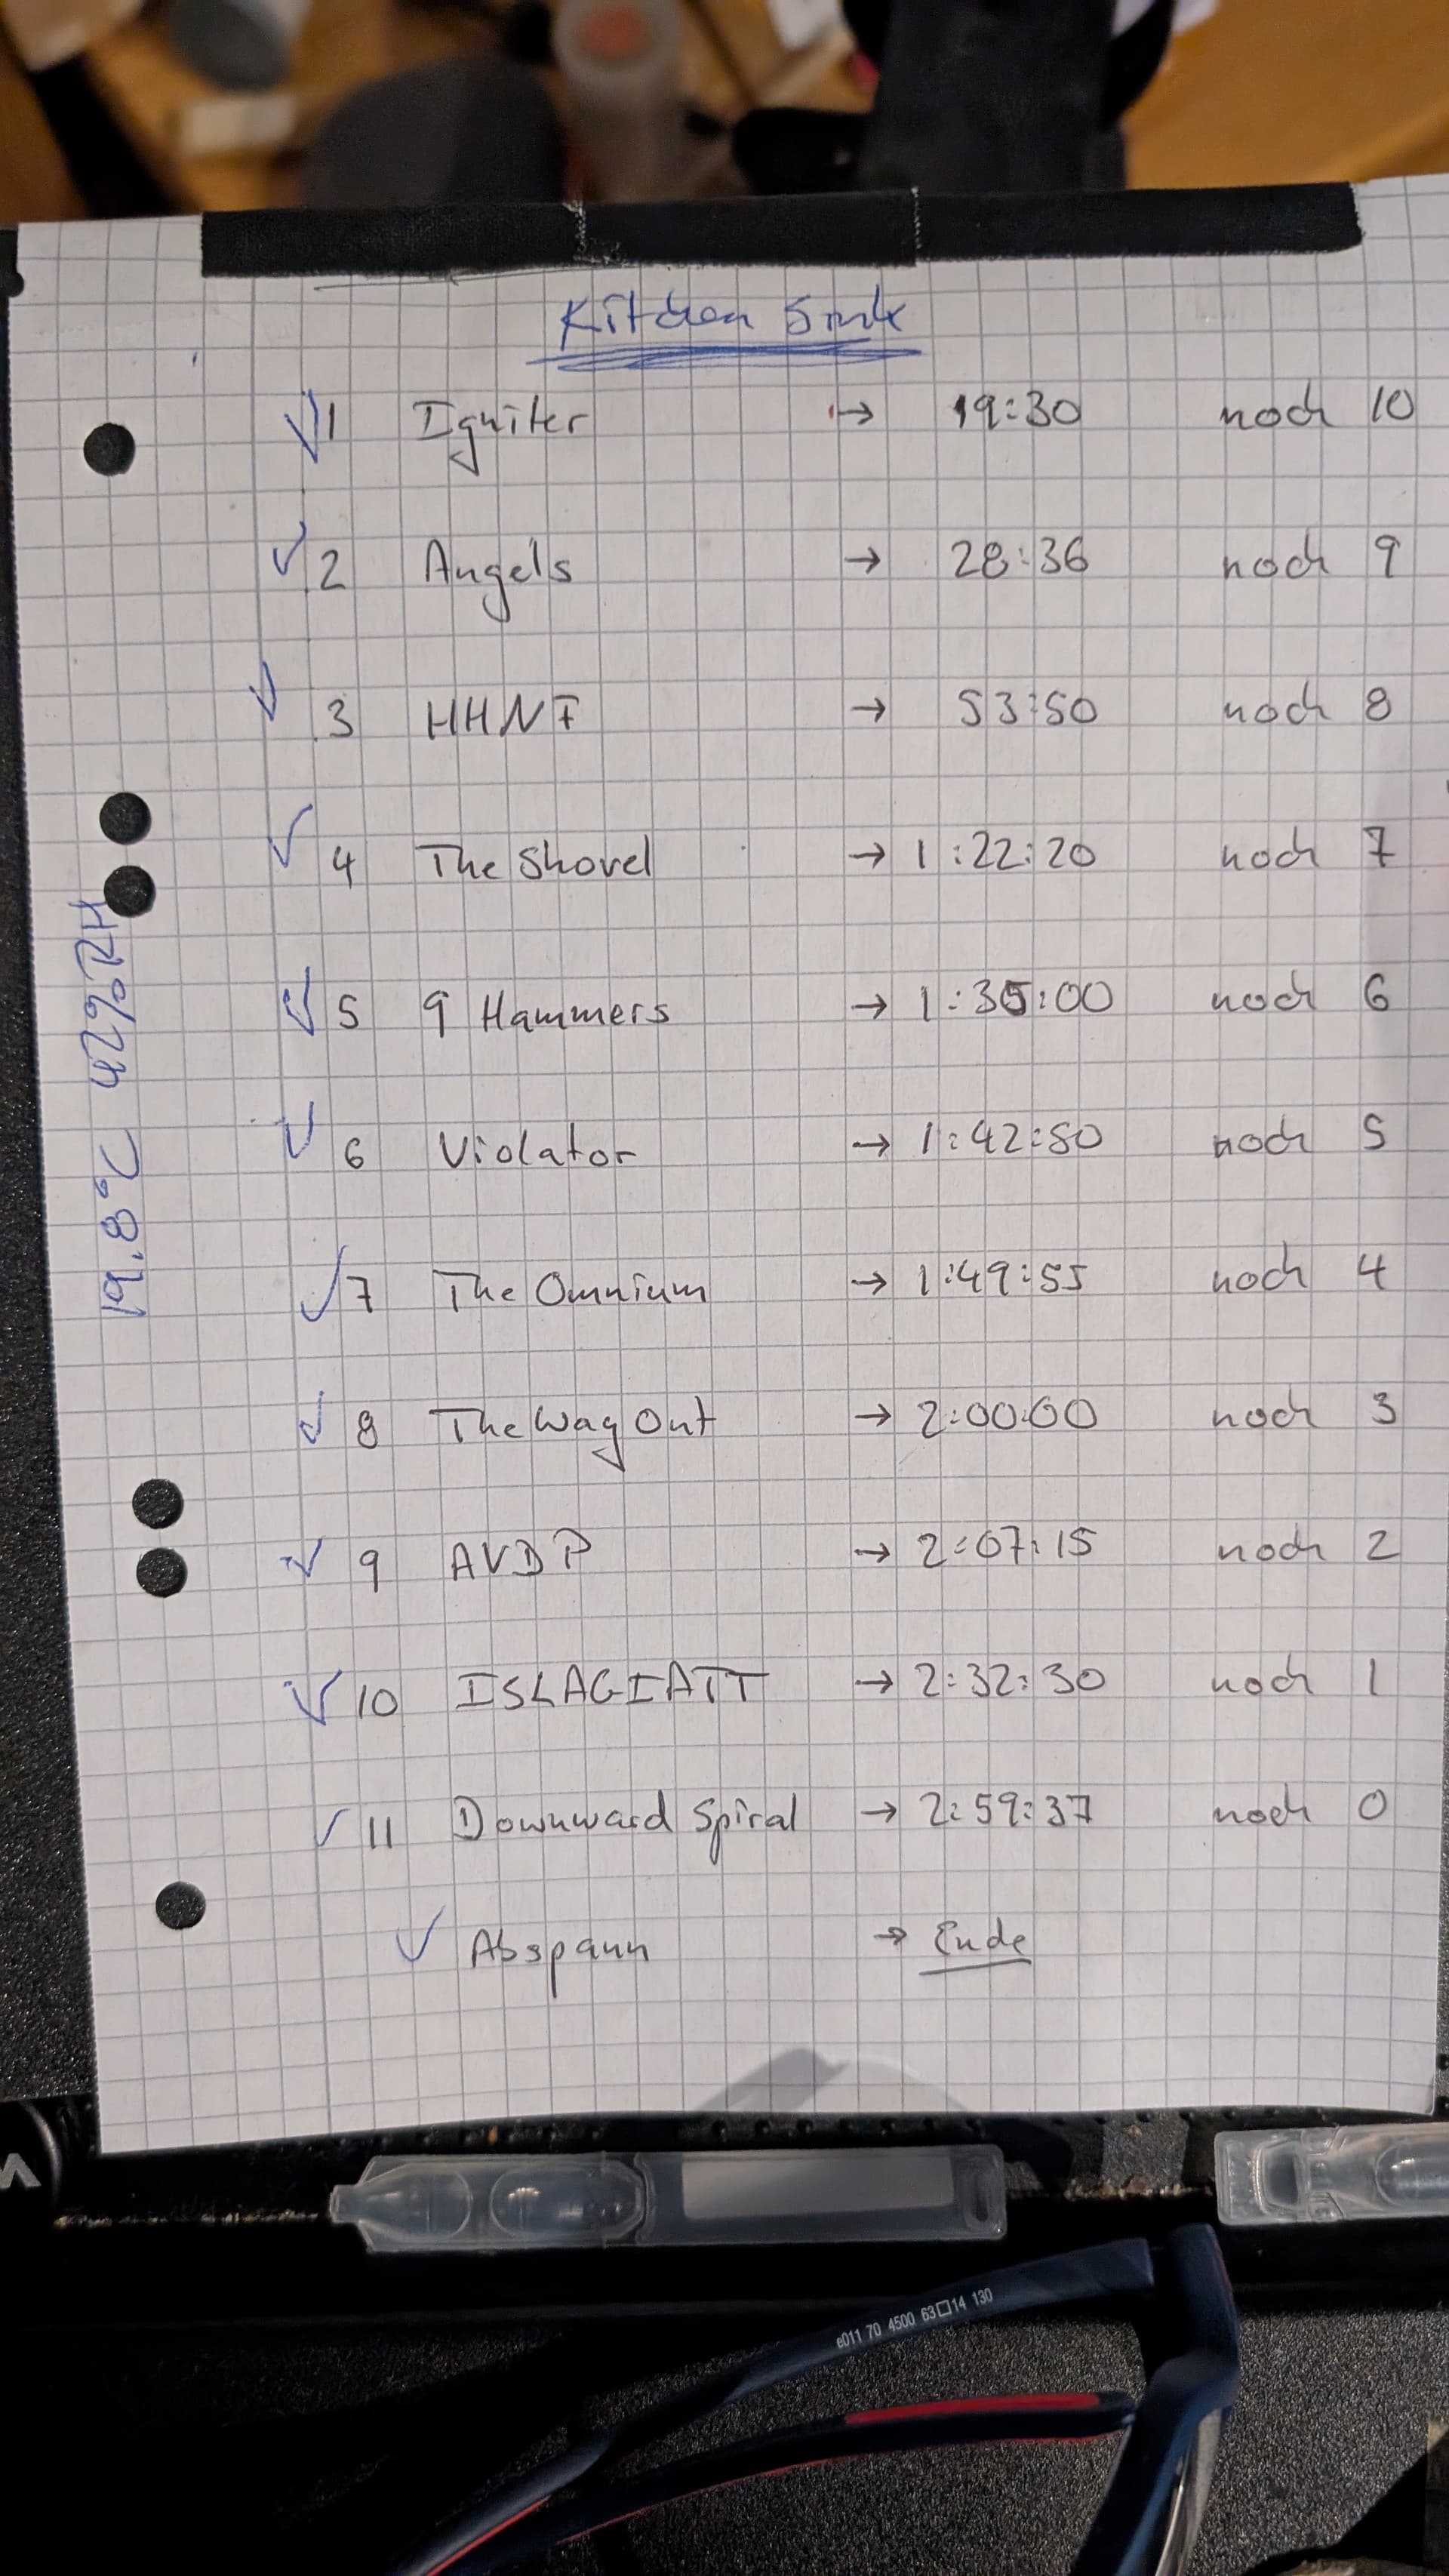 Kitchen Sink
✓ 1 Igniter → 19:30 noch 10
✓ 2 Angels → 28:36 noch 9
✓ 3 HHNF → 53:50 noch 8
✓ 4 The Shovel → 1:22:20 noch 7
✓ 5 9 Hammers → 1:35:00 noch 6
✓ 6 Violator → 1:42:50 noch 5
✓ 7 The Omnium → 1:49:55 noch 4
✓ 8 The Way Out → 2:00:00 noch 3
✓ 9 AVDP → 2:07:15 noch 2
✓ 10 ISLAGIATT → 2:32:30 noch 1
✓ 11 Downward Spiral → 2:59:37 noch 0
✓ Abspann → Ende
19.8°C 42%RH
e011 70 4500 63□14 130